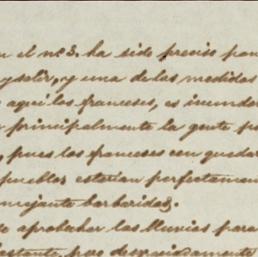 n el nº 3. ha sido preciso pon
y salir, y una de las medidas
aqui los franceses, es inunda
principalmente la gente po
, pues los franceses con quedar
pueblos estarian perfectamen
mejante barbaridad.
de aprobechar las lluvias para
bastante, pero desgraciadamente